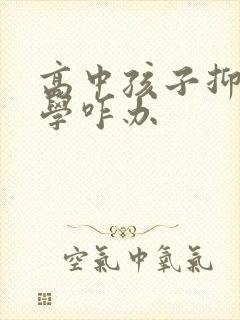 高中孩子抑
學咋办
空氣中氧氣